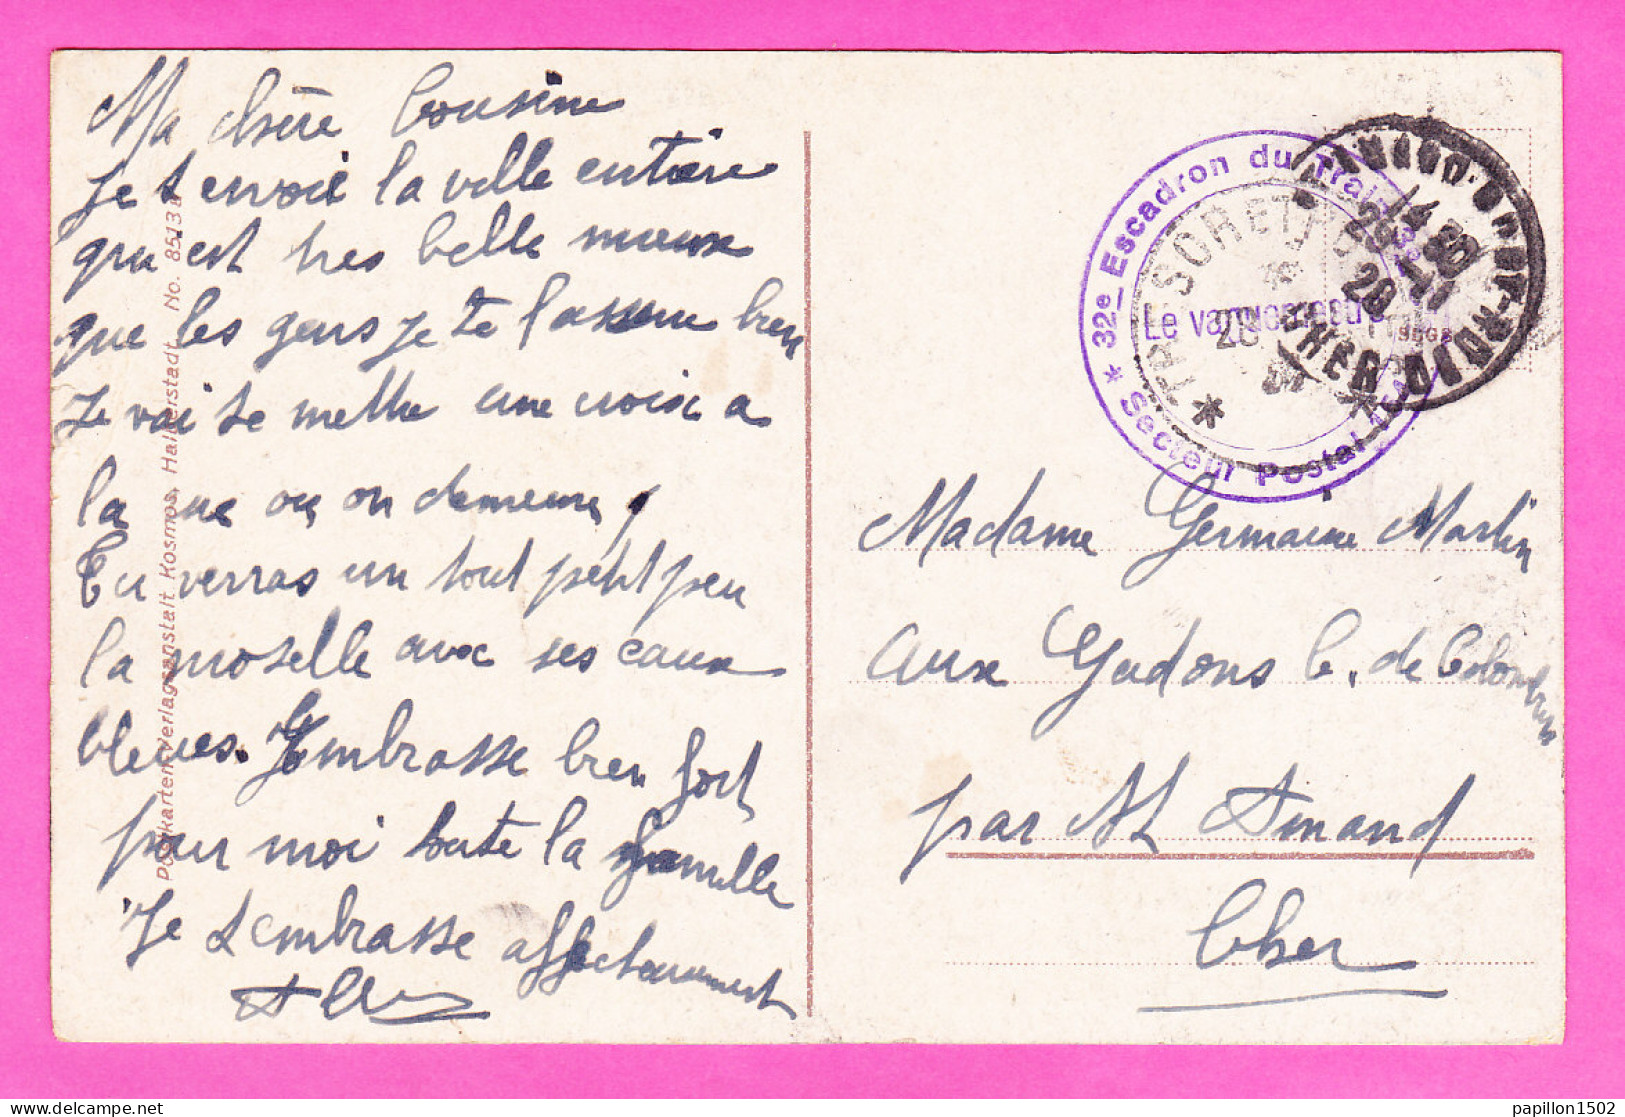 Ma chère Cousine
Je t envoie la ville entière
qui est tres belle mieux
que les gens je te l assure bien
Je vai te mettre une croix a
la rue ou on demeure,
Tu verras un tout petit peu
la moselle avec ses eaux
bleues. Embrasse bien fort
pour moi toute la famille
Je t embrasse affectueusement
Postkartenverlagsanstalt Kosmos, Halberstadt. No. 8513
* 32e Escadron du Train *
Secteur Postal
Le vaguemestre
TRESOR ET
* CHER *
14 30
29 -11
20
Madame Germaine Martin
aux Gadons C. de Colombiers
par St Amand
Cher
papillon1502